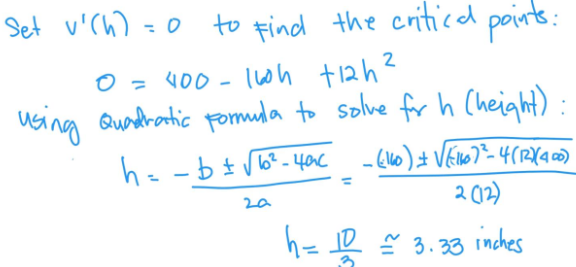 Set v'(h) = 0 to find the critical points:
0 = 400 - 160h + 12h²
using Quadratic formula to solve for h (height) :
h = -b ± √b² - 4ac / 2a = -(-160) ± √(-160)² - 4(12)(400) / 2(12)
h = 10/3 ≅ 3.33 inches